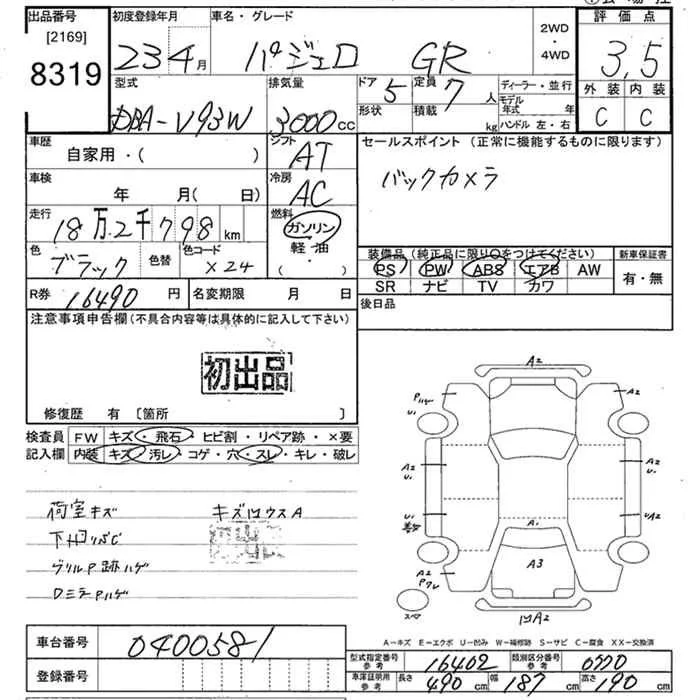 出品番号
[2169]
8319
初度登録年月
23 4月
車名・グレード
パジェロ GR
2WD
・
4WD
評価点
3,5
外装 内装
C C
型式
DBA-V93W
排気量
3000cc
ドア 5
形状
定員 7人
積載 kg
ディーラー・並行
モデル年式 年
ハンドル 左・右
車歴
自家用・( )
シフト
AT
セールスポイント (正常に機能するものに限ります)
バックカメラ
車検
年 月( 日)
冷房
AC
走行
18万2千798km
燃料
ガソリン
軽・油
・
色
ブラック
色替
色コード
X24
装備品 (純正品に限り○をつけてください)
PS PW ABS エアB AW
SR ナビ TV カワ
新車保証書
有・無
R券 16490円
名変期限 月 日
後日品
注意事項申告欄(不具合内容等は具体的に記入して下さい)
初出品
修復歴 有 〔箇所 〕
検査員記入欄
FW キズ・飛石・ヒビ割・リペア跡・×要
内装 キズ・汚レ・コゲ・穴・スレ・キレ・破レ
荷室キズ
キズ凹ウスA
初出品
グリルP跡ハゲ
DミラPハゲ
A2
Pハゲ
U1
A2
A2
U1
A2
U1
U1
UA2
A1
A3
A2
A2
凹A2
スペア
A-キズ E-エクボ U-凹み W-補修跡 S-サビ C-腐食 XX-交換済
車台番号
0400581
登録番号
型式指定番号
参考
16402
類別区分番号
参考
0570
車庫証明用
参考
長さ 490cm
幅 187cm
高さ 190cm